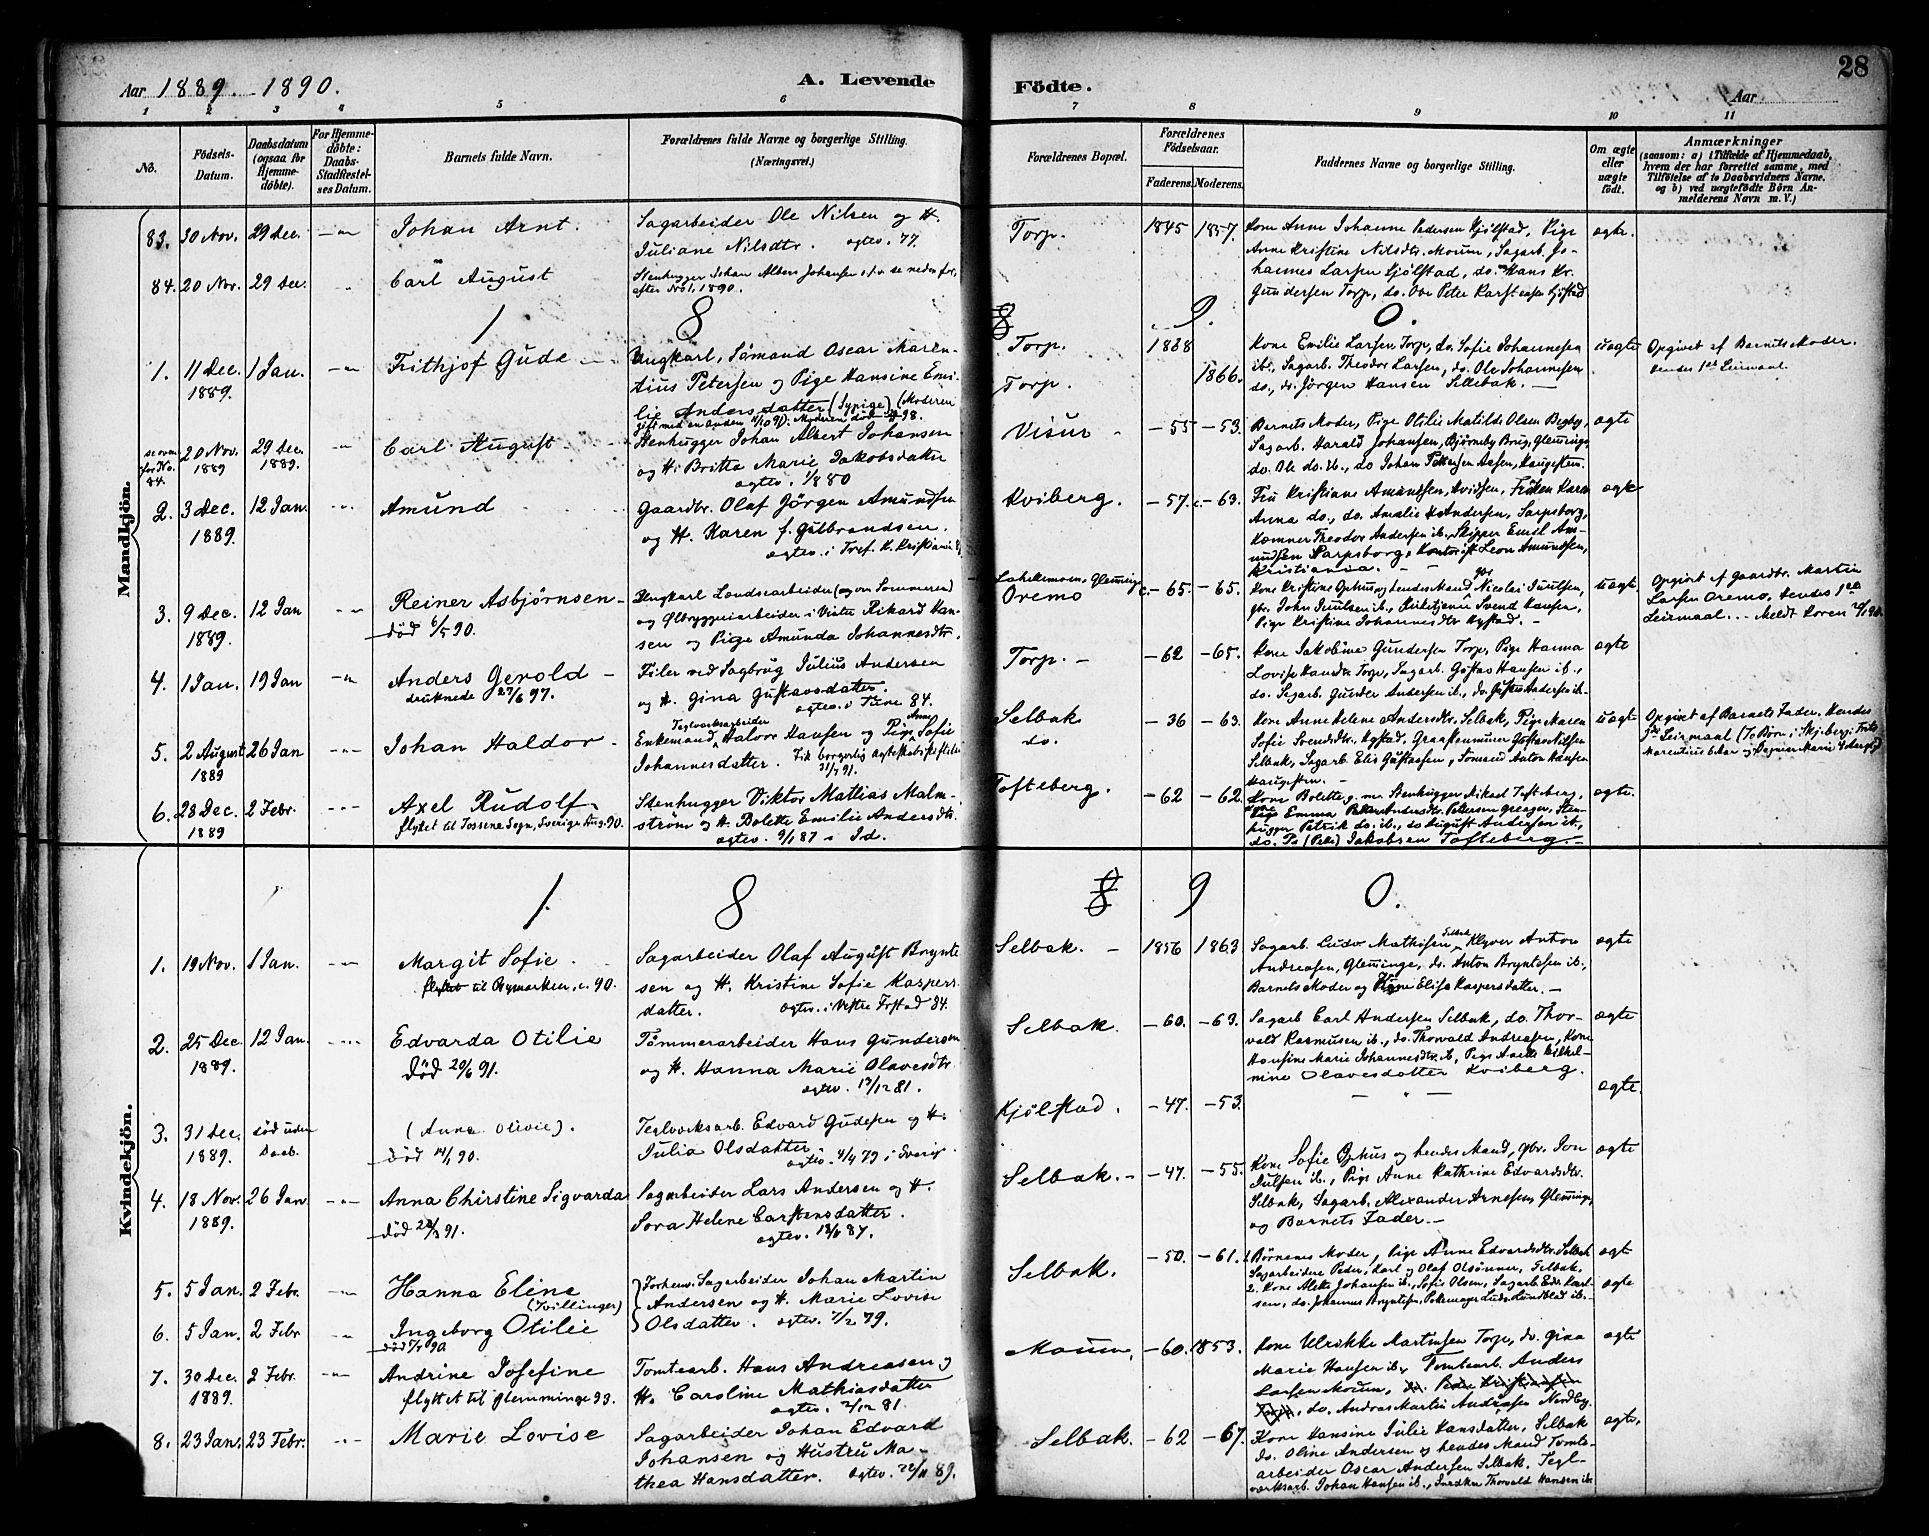 28
Aar 1889. 1890.
A. Levende Födte.
Aar
1 2 3 4 5 6 7 8 9 10 11
No.
Födsels-Datum.
Daabsdatum (ogsaa for Hjemme-döbte).
For Hjemme-döbte: Daabs-Stadfæstel-ses Datum.
Barnets fulde Navn.
Forældrenes fulde Navne og borgerlige Stilling. (Næringsvei.)
Forældrenes Bopæl.
Forældrenes Födselsaar.
Faderens. Moderens.
Faddernes Navne og borgerlige Stilling.
Om ægte eller uægte födt.
Anmærkninger
(saasom: a) i Tilfælde af Hjemmedaab, hvem der har forrettet samme, med Tilföielse af to Daabsvidners Navne. og b) ved uægtefödte Börn An-melderens Navn m. V.)
Mandkjön.
83. 30 Nov. 29 Dec. Johan Arnt. Sagarbeider Ole Nilsen og H.
Juliane Nilsdtr. ægtev. 77.
Torp. 1845 1857. Kone Anne Johanne Pedersen Kjölstad, Pige
Anne Kristine Nilsdtr. Moum, Sagarb. Jo-
hannes Larsen Kjölstad, do. Hans Kr.
Gundersen Torp, do.
ægte.
84. 20 Nov. 29 Dec. Carl August Stenhugger Johan Albert Johansen
efter No 1, 1890.
1 8 9. 0.
1. 11 Dec. 1889. 1 Jan. Frithjof Gude Ungkarl, Sömand Oscar Maren-
tius Petersen og Pige Hansine Emi-
lie Andersdatter (Sypige) (Moderen
gift med en anden Moderen död 98.
Torp. 1868
Torp. 1866.
Kone Emilie Larsen Torp, do. Sofie Johannesen
ib., Sagarb. Theodor Larsen, do. Ole Johannesen
do., do. Jörgen Hansen Sellebak.
uægte Opgivet af Barnets Moder.
Hendes 1ste Leirmaal.
se oven for No. 84. 20 Nov. 1889 29 Dec. 1889. Carl August Stenhugger Johan Albert Johansen
og H. Britta Marie Jakobsdatter
ægtev. 1/8 80
Visur -55 -53. Barnets Moder, Pige Otilie Matilde Olsen
Sagarb. Harald Johansen, Björneby Brug, Glemminge,
do. Ole do. ib., do Johan Pettersen Aasen, Haugesten.
ægte
2. 3 Dec. 1889. 12 Jan. Amund Gaardbr. Olaf Jörgen Amundsen
og H. Karen f. Gulbrandsen.
ægtev. i Tref. K. Kristiania
Kviberg. -57. -63. Fru Kristiane Amundsen, Fröken Karen
Anna do., do. Amalie Andersen, Sarpsborg,
Kæmner Theodor Andersen ib., Skipper Emil Am-
undsen Sarpsborg, Kontorist Leon Amundsen,
Kristiania.
ægte
3. 9 Dec. 1889. 12 Jan Reiner Asbjörnsen
död 6/5 90.
Ungkarl Landsearbeider (og om Sommeren)
og Ölbryggeriarbeider i Vinter Rikard Han-
sen og Pige Amunda Johannesdtr.
Glemminge
Oremo -65. -65. Kone Kristine Ophus, hendes Mand Nicolai Juulsen,
gbr. John Juulsen ib., Kirketjener Svend Hansen,
Pige Kristine Johannesdtr. Nystad.
uægte Opgivet af Gaardbr. Martin
Larsen Oremo, hendes 1ste
Leirmaal. Meldt Loven 20/1 90.
4. 1 Jan. 19 Jan Anders Gerold
druknede 27/6 97.
Filer ved Sagbrug Julius Andersen
og H. Gina Gustavsdatter.
ægtev. i Tune 84.
Torp. -62 -65. Kone Jakobine Gundersen Torp, Pige Hanna
Lovise Torp, Sagarb. Gustav Hansen ib.,
do. Sagarb. Gunder Andersen ib., do. Gustav Andersen ib.
ægte
5. 2 August 1889 26 Jan Johan Haldor Teglverksarbeider
Enkemand Halvor Hansen og Pige Anne Sofie
Johannesdatter. Fik borgerlig
31/7 91.
Selbak do. -36 -63. Kone Anne Helene Andersdtr. Selbak, Pige Maren
Sofie Svendsdtr. Nystad, Gustav Nilsen
Selbak, Sagarb. Elis Gustavsen, Sömand Anton Hansen
Haugesten.
uægte Opgivet af Barnets Fader. Hendes
Leirmaal (To Börn i Skjeberg:
Marentius 6 Aar og Dagmar Marie 4 Aar
6. 28 Dec. 1889 2 Febr. Axel Rudolf
flyttet til Tossene Sogn, Sverige Aug. 90.
Stenhugger Viktor Mattias Malm-
ström og H. Bolette Emilie Andersdtr.
ægtev. 9/1 87 i Id.
Tofteberg. -62 -62. Kone Bolette g. m. Stenhugger Rikard Tofteberg,
Emma Petersen Sten-
hugger Petrik do. ib., do August Andersen ib.,
do. Per (Peter) Jakobsen Tofteberg.
ægte.
Kvindekjön.
1. 8 9 0.
1. 19 Nov. 1 Jan. Margit Sofie.
flyttet til Rymarken, c. 90.
Sagarbeider Olaf August Brynte
sen og H. Kristine Sofie Kaspers
datter. ægtev. i Vestre Frstad 84.
Selbak. 1856 1863 Sagarb. Ludv. Mathisen Selbak, Klyver Anton
Andreasen, Glemminge, do. Anton Bryntesen ib.,
Barnets Moder og Pige Elise Kaspersdatter.
ægte
2. 25 Dec. 1889. 12 Jan. Edvarda Otilie
Död 20/6 91.
Tömmerarbeider Hans Gundersen
og H. Hanna Marie Olavesdtr.
ægtev. 13/12 81.
Selbak. -60. -63. Sagarb Carl Andersen Selbak, do. Thor-
vald Rasmusen ib., do. Thorvald Andreasen, Kone
Hansine Marie Johannesdtr. ib., Pige Anette Vilhel-
mine Olavesdatter Kviberg.
ægte
3. 31 Dec. 1889. död uden Daab. (Anna Olivie).
död 14/1 90.
Teglverksarb. Edvard Gudesen og H.
Julia Olsdatter
ægtev. 4/4 79 i Sverig.
Kjölstad. -47. -53. ægte
4. 18 Nov. 1889. 26 Jan Anna Chirstine Sigvarda
död 20/3 91.
Sagarbeider Lars Andersen og H.
Sora Helene Carstensdatter.
ægtev. 13/11 87.
Selbak. -47. -55. Kone Sofie Ophus og hendes Mand, gbr. Jon
Julsen ib., Pige Anne Kathrine Edvardsdtr.
Selbak, Sagarb. Alexander Arnesen, Glemminge,
og Barnets Fader.
ægte
5. 5 Jan. 2 Febr. Hanna Eline
(Tvillinger)
6. 5 Jan. 2 Febr Ingeborg Otilie
död 5/4 90.
Forhenv. Sagarbeider Johan Martin
Andersen og H. Marie Lovise
Olsdatter. ægtev. 7/2 79.
Selbak. -50. -61. 1. Börnenes Moder, Pige Anne Edvardsdtr. Selbak
Sagarbeidere Peder, Karl og Olaf Olsönner, Selbak.
2. Kone Alette Johansen ib., Sofie Olsen, Sagarb. Edv. Karl-
sen, do. Johannes Bryntesen, Ludv. Lundblad ib.
ægte
ægte
7. 30 Dec. 1889. 2 Febr. Andrine Josefine
flyttet til Glemminge 93.
Tomtearb. Hans Andreasen og
H. Caroline Mathiasdatter
ægtev. 2/12 81.
Moum. -60. 1853. Kone Ulrikke Martinsen Torp, do. Gina
Marie Hansen ib., Tomtearb. Anders
Larsen Moum, do. Peder Kristiansen
Torp, do. Andreas Martin Andreasen Nordby.
ægte
8. 23 Jan. 23 Febr. Marie Lovise Sagarbeider Johan Edvard
Johansen og Hustru Ma-
thea Hansdatter. ægtev. 22/11 89.
Selbak. -62 -67. Kone Hansine Julie Hansdatter, Selbak
do. Oline Andersen og hendes Mand Tomte-
arbeider Oscar Andersen Selbak, Tegl-
verksarb. Johan Hansen ib., Thorvald Hansen ib.
ægte.